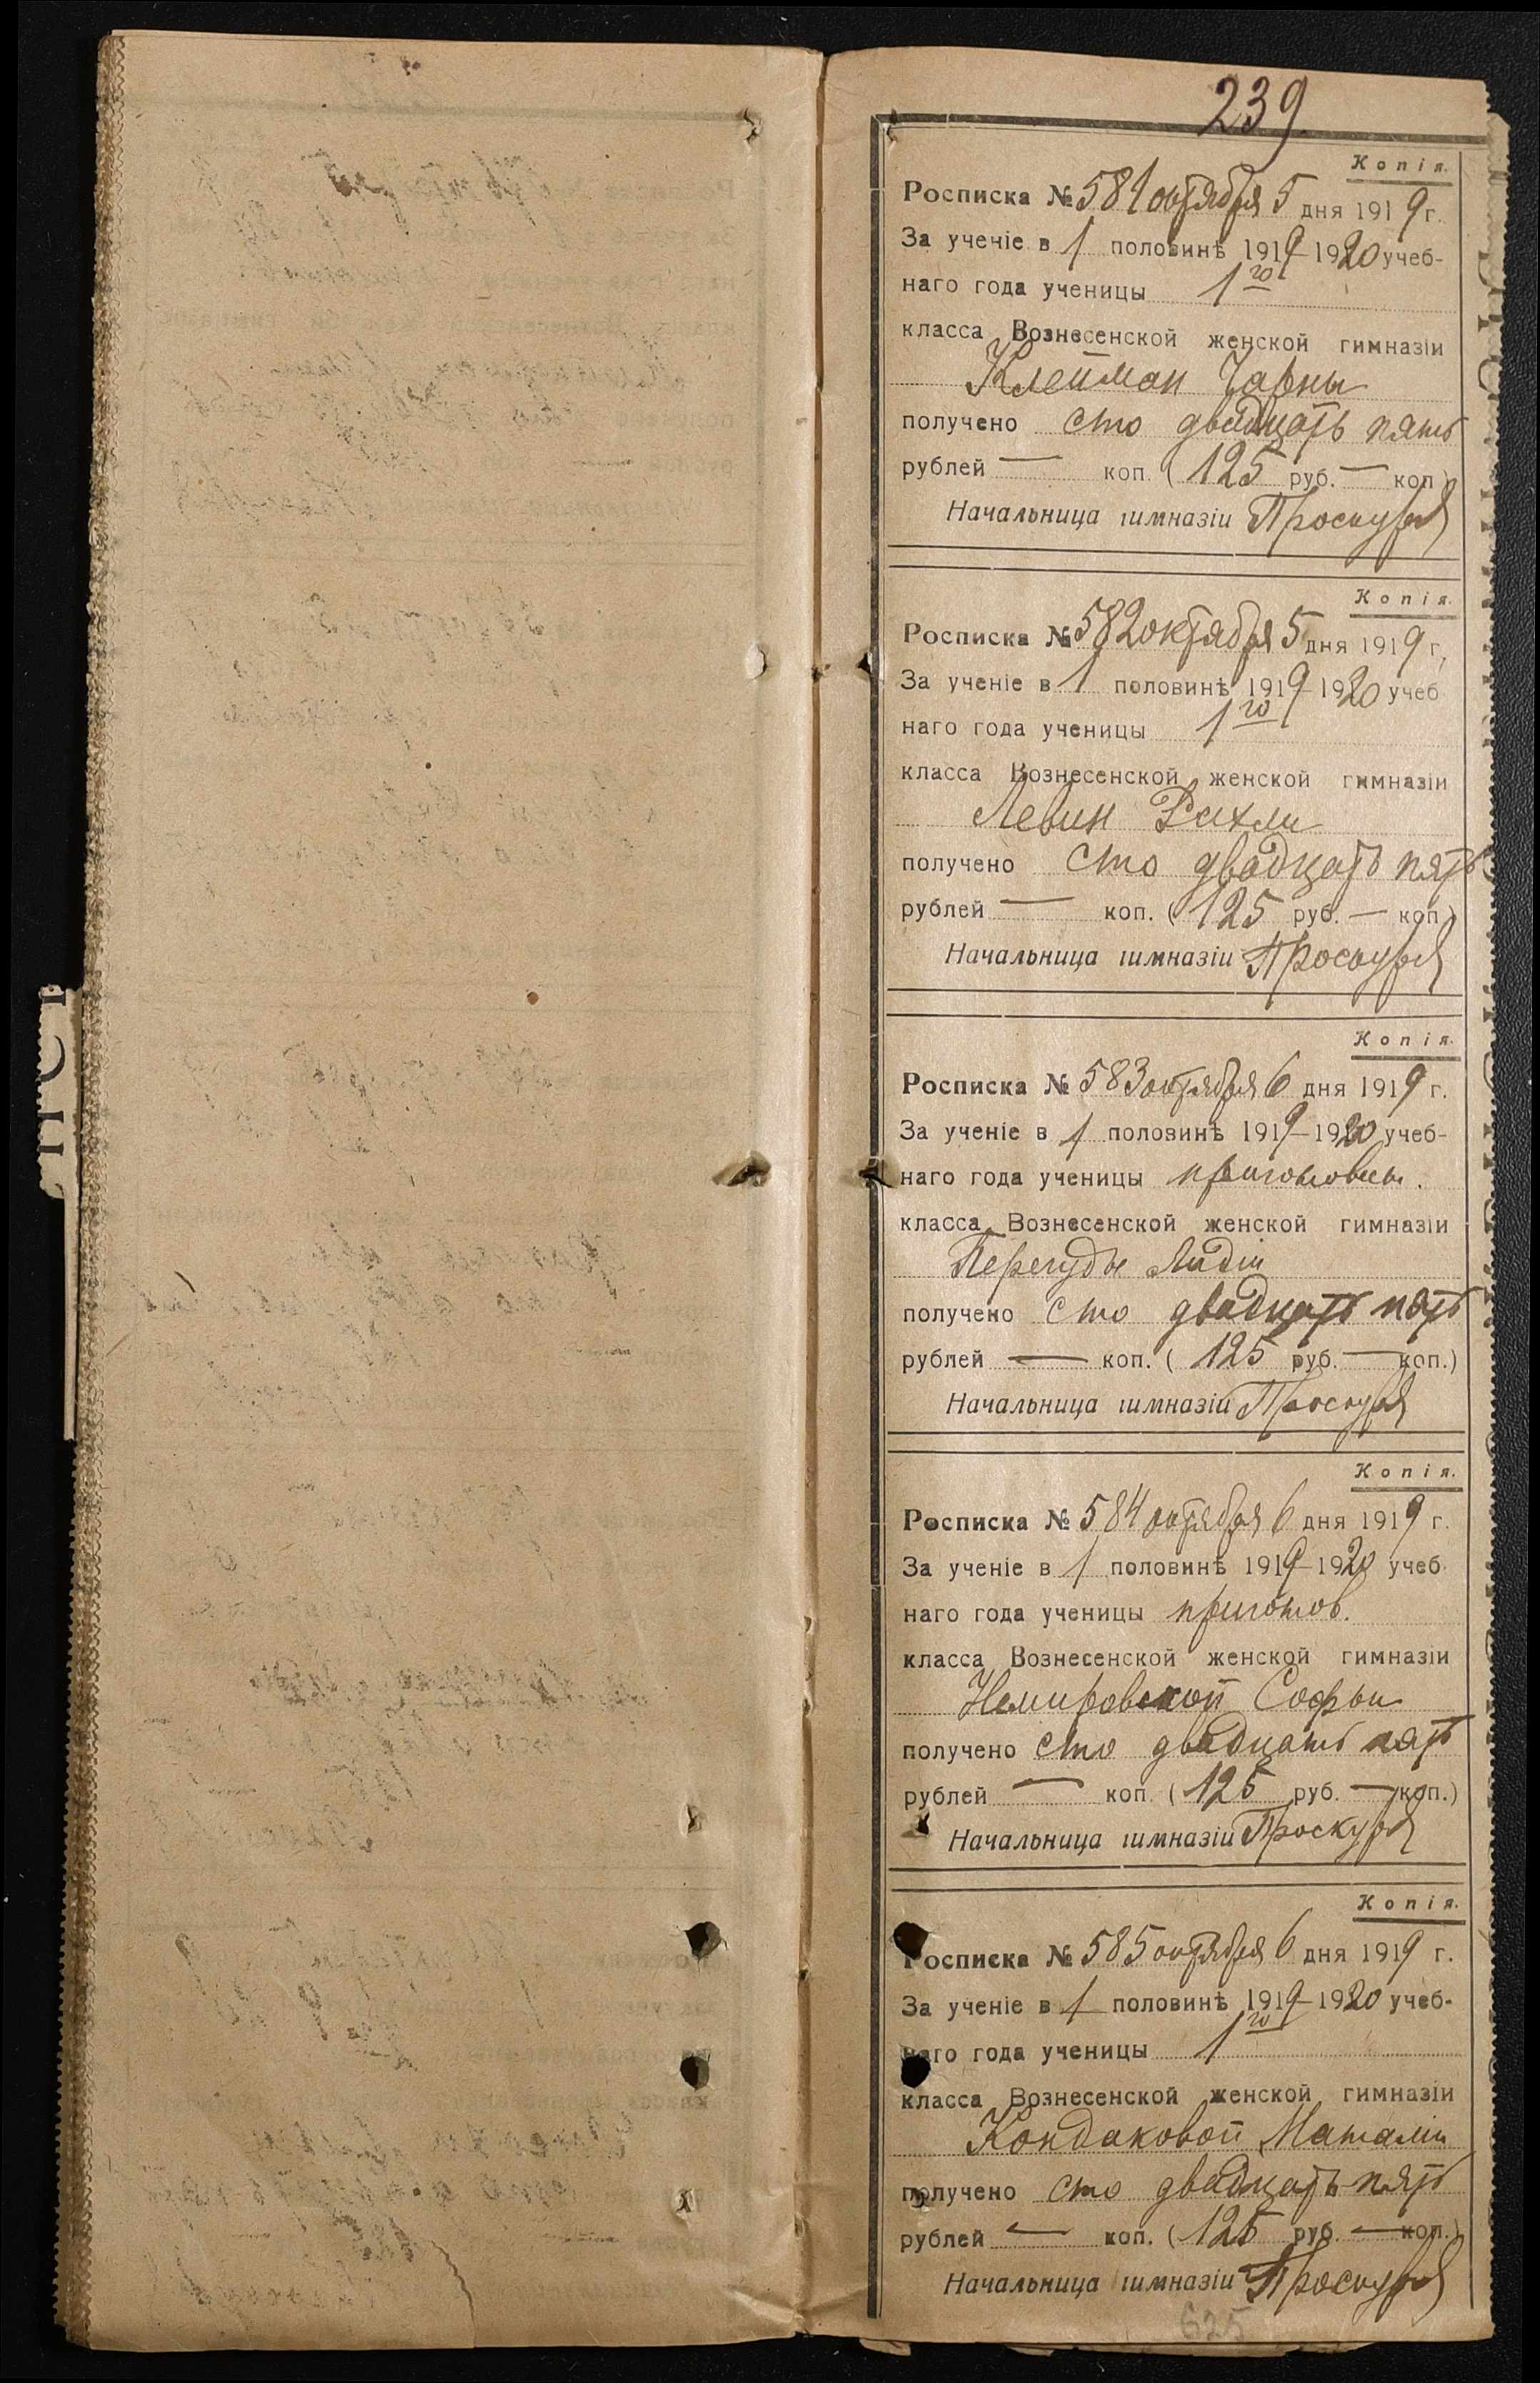 239
Копія.
Росписка № 581 октября 5 дня 1919 г.
За ученіе в 1 половинѣ 1919–1920 учеб-
наго года ученицы 1го
класса Вознесенской женской гимназіи
Клейман Чарны
получено сто двадцать пять
рублей — коп. (125 руб. — коп.)
Начальница гимназіи Проскуря
Копія.
Росписка № 582 октября 5 дня 1919 г.
За ученіе в 1 половинѣ 1919–1920 учеб-
наго года ученицы 1го
класса Вознесенской женской гимназіи
Левин Рихли
получено сто двадцать пять
рублей — коп. (125 руб. — коп.)
Начальница гимназіи Проскуря
Копія.
Росписка № 583 октября 6 дня 1919 г.
За ученіе в 1 половинѣ 1919–1920 учеб-
наго года ученицы приготовит.
класса Вознесенской женской гимназіи
Перегуды Лидіи
получено сто двадцать пять
рублей — коп. (125 руб. — коп.)
Начальница гимназіи Проскуря
Копія.
Росписка № 584 октября 6 дня 1919 г.
За ученіе в 1 половинѣ 1919–1920 учеб-
наго года ученицы приготов.
класса Вознесенской женской гимназіи
Немировской Софьи
получено сто двадцать пять
рублей — коп. (125 руб. — коп.)
Начальница гимназіи Проскуря
Копія.
Росписка № 585 октября 6 дня 1919 г.
За ученіе в 1 половинѣ 1919–1920 учеб-
наго года ученицы 1го
класса Вознесенской женской гимназіи
Кондаковой Наталіи
получено сто двадцать пять
рублей — коп. (125 руб. — коп.)
Начальница гимназіи Проскуря
625